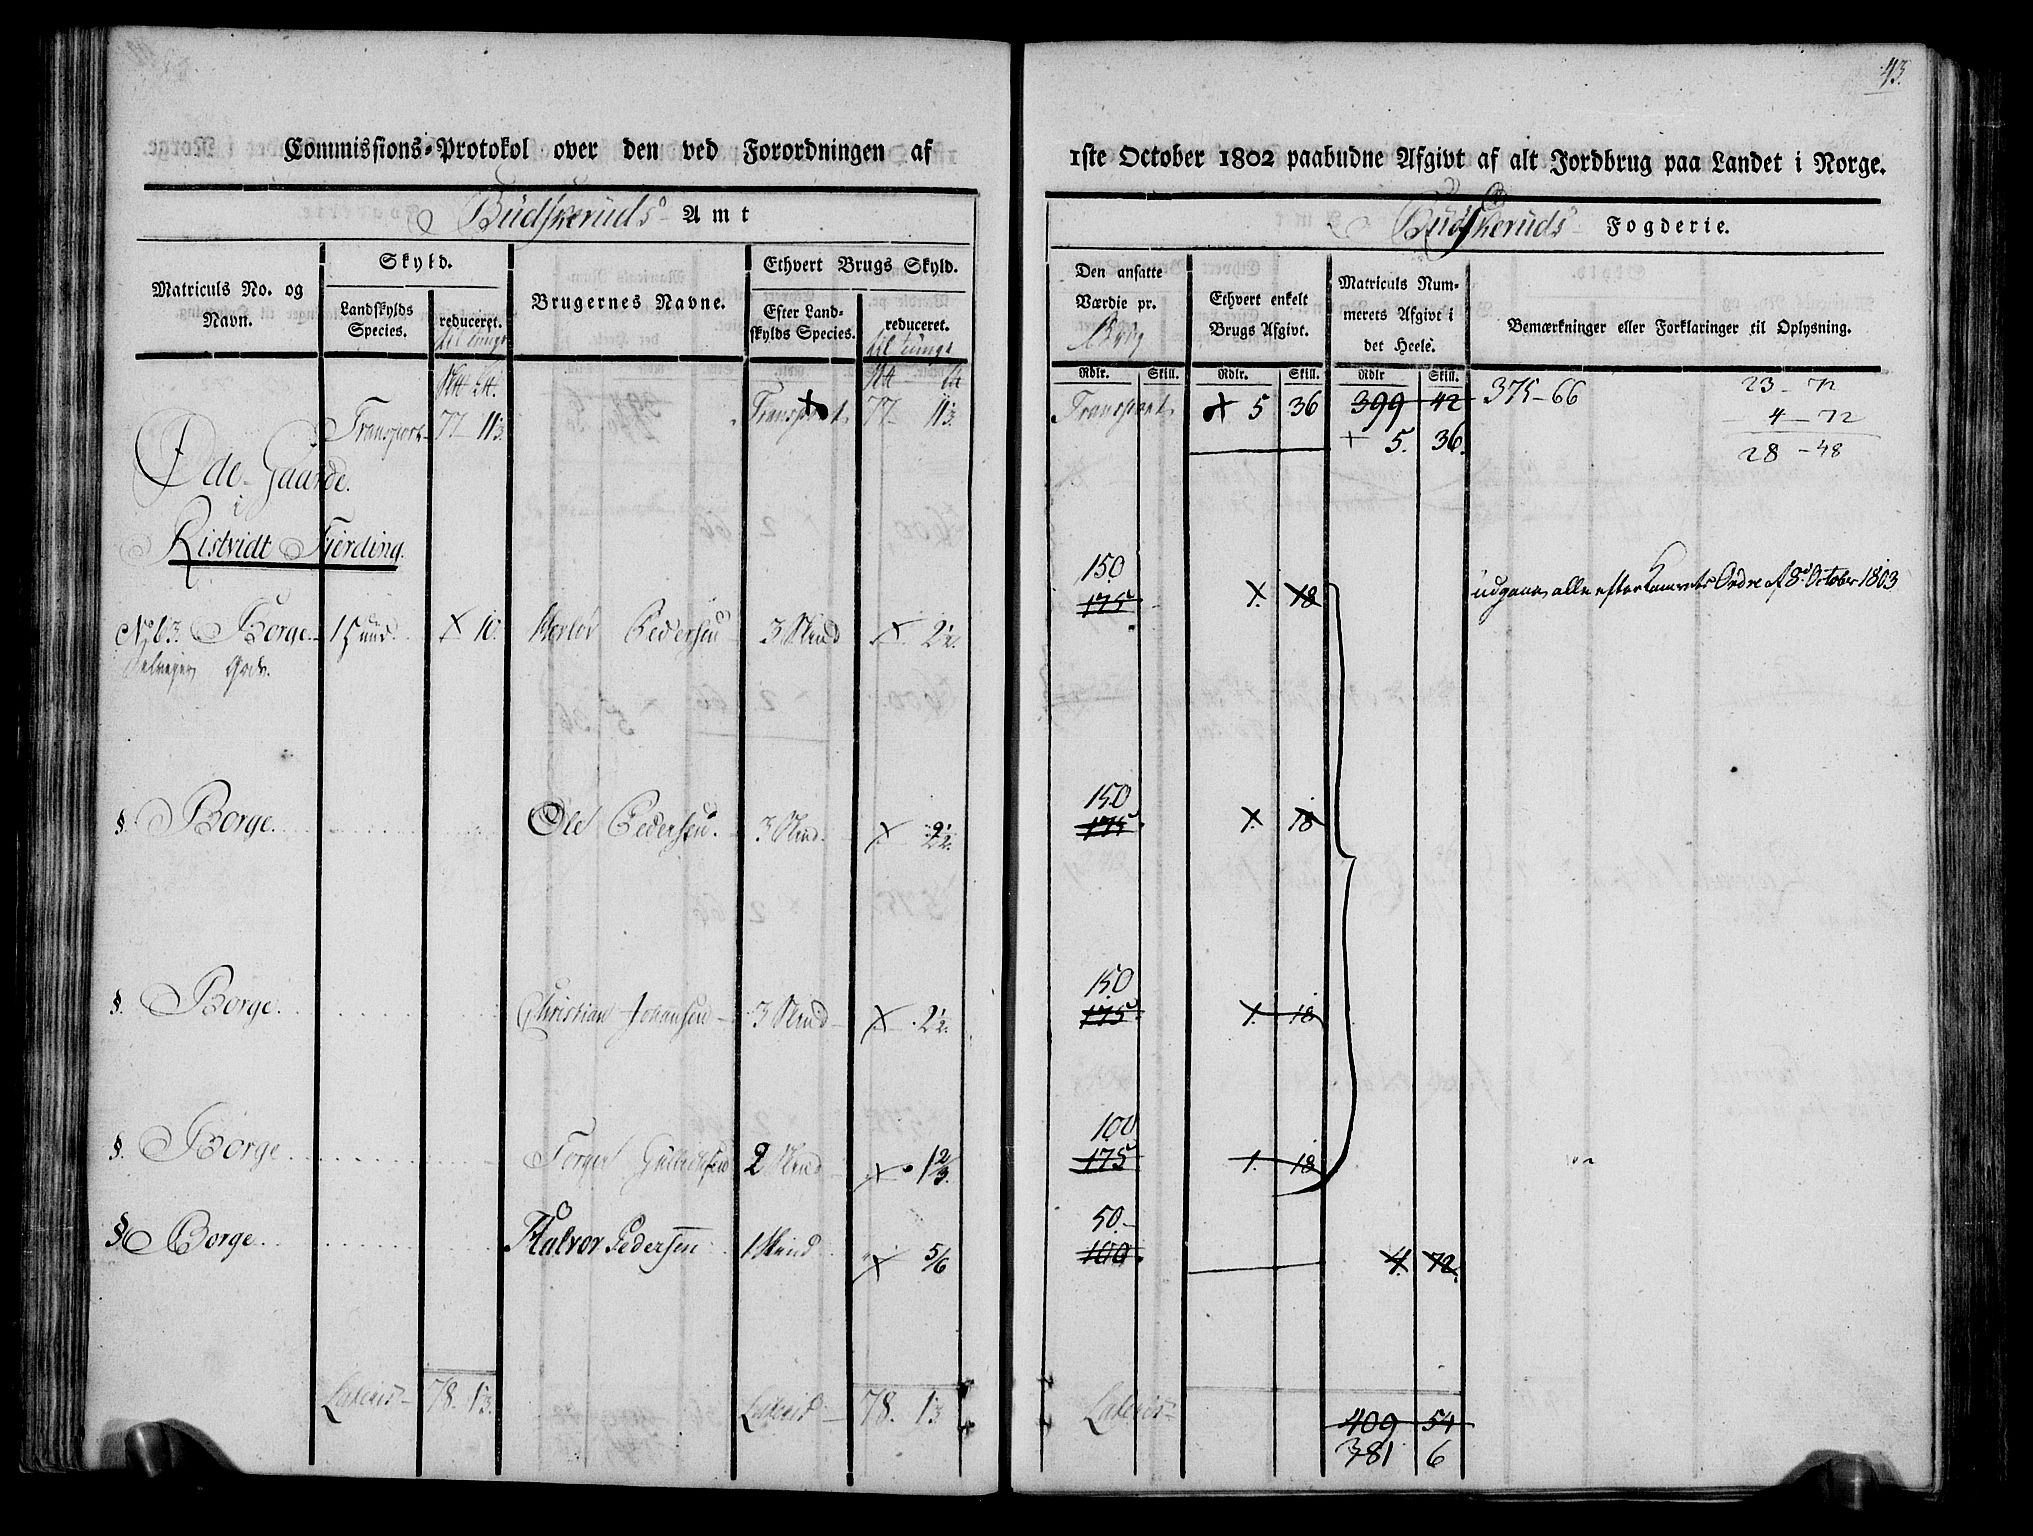 43.
Commissions-Protokol over den ved Forordningen af 1ste October 1802 paabudne Afgivt af alt Jordbrug paa Landet i Norge.
Budskeruds Amt
Budskeruds Fogderie.
Matriculs No. og Navn.
Skyld.
Landskylds Species.
reduceret.
til tunge
Brugernes Navne.
Ethvert Brugs Skyld.
Efter Landskylds Species.
reduceret.
til tunge
Den ansatte Værdie pr.
Ethvert enkelt Brugs Afgivt.
Matriculs Nummerets Afgivt i det Heele.
Bemærkninger eller Forklaringer til Oplysning.
Rdlr. Skill. Rdlr. Skill. Rdlr Skill.
Transport 77 11⅓ Transport 77 11⅓ Transport 5 36 399 42 375-66 23-72
+ 5. 36. 4-72
28-48
Øde-Gaarde
i
Kistvidt Fierding.
150
No. 63. Borge 1 Hud X 10. Pedersen 3 Skind X 2½. 175 1. 18
udgaaer alle efter Kamrets Ordre af 8de October 1803
150
§. Borge. Ole Pedersen. 3 Skind. X 2½. 175 1. 18
150
§. Borge. Christian Johansen 3 Skind X 2½. 175 1. 18
100
§. Borge Torger 2 Skind X 1⅔. 175 1. 18
50
§ Borge. Halvor Pedersen 1 Skind X 5/6 100 4. 72.
Lateris 78. 1⅓. Lateris 78. 1⅓ Lateris 409 54
381 6